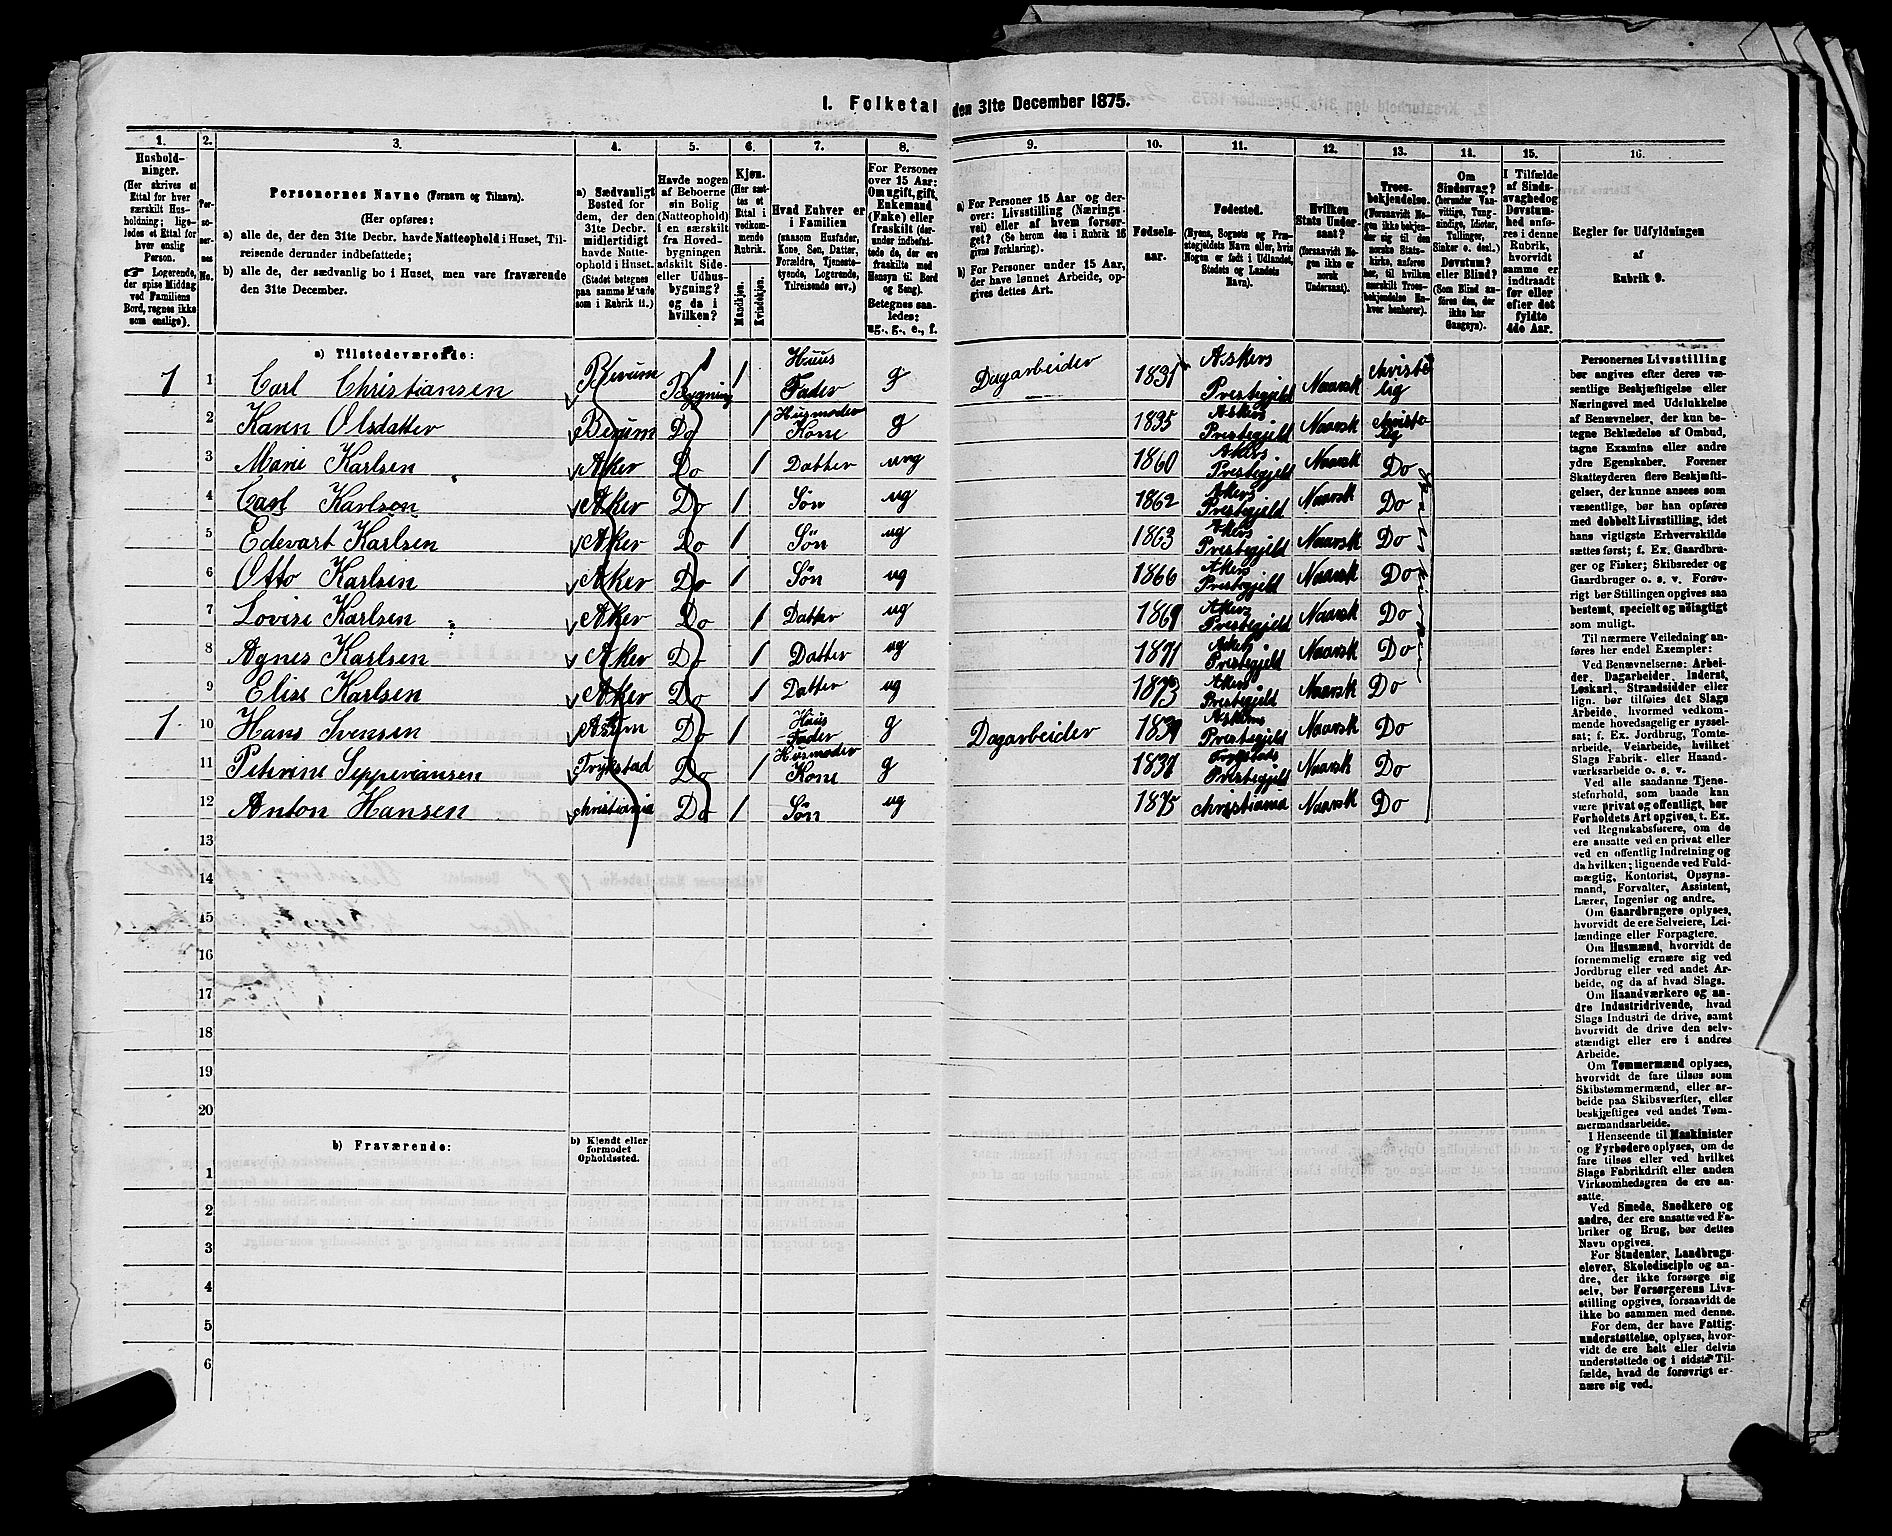 1. Folketal den 31te December 1875.
1. 2. 3. 4. 5. 6. 7. 8. 9. 10. 11. 12. 13. 14. 15. 16.
Hushold-
ninger.
(Her skrives et
Ettal for hver
særskilt Hus-
holdning; lige-
ledes et Ettal for
hver enslig
Person.
☞ Logerende,
der spise Middag
ved Familiens
Bord, regnes ikke
som enslige).
Per-
so-
ner-
nes
No.
Personernes Navne (Fornavn og Tilnavn).
(Her opføres:
a) alle de, der den 31te Decbr. havde Natteophold i Huset, Til-
reisende derunder indbefattede;
b) alle de, der sædvanlig bo i Huset, men vare fraværende
den 31te December.
a) Sædvanligt
Bosted for
dem, der den
31te Decbr.
midlertidigt
havde Natte-
ophold i Huset.
(Stedet betegnes
paa samme Maade
som i Rubrik 11.)
Havde nogen
af Beboerne
sin Bolig
(Natteophold)
i en særskilt
fra Hoved-
bygningen
adskilt Side-
eller Udhus-
bygning?
og da i
hvilken?
Kjøn.
(Her sæt-
tes et
Ettal i
vedkom-
mende
Rubrik.
Mandkjøn.
Kvindekjøn.
Hvad Enhver er
i Familien
(saasom Husfader,
Kone, Søn, Datter,
Forældre, Tjeneste-
tyende, Logerende,
Tilreisende osv.)
For Personer
over 15 Aar:
Om ugift, gift,
Enkemand
(Enke) eller
fraskilt (der-
under indbefat-
tede de, der ere
fraskilte med
Hensyn til Bord
og Seng).
Betegnes saa-
ledes:
ug., g., e., f.
a) For Personer 15 Aar og der-
over: Livsstilling (Nærings-
vei) eller af hvem forsør-
get? (Se herom den i Rubrik 16
givne Forklaring).
b) For Personer under 15 Aar,
der have lønnet Arbeide, op-
gives dettes Art.
Fødsels-
aar.
Fødested.
(Byens, Sognets og Præ-
stegjeldets Navn eller, hvis
Nogen er født i Udlandet,
Stedets og Landets
Navn).
Hvilken
Stats Under-
saat?
(forsaavidt No-
gen ikke er
norsk
Undersaat).
Troes-
bekjendelse.
(Forsaavidt No-
gen ikke bekjen-
der sig til den
norske Stats-
kirke, anføres
her, til hvilken
særskilt Troes-
bekjendelse En-
hver henhører).
Om
Sindssvag?
(herunder Van-
vittige, Tung-
sindige, Idioter,
Tullinger,
Sinker o. desl.)
Døvstum?
eller Blind?
(Som Blind an-
føres den, der
ikke har
Gangsyn).
I Tilfælde
af Sinds-
svaghed og
Døvstum-
hed anfø-
res i denne
Rubrik,
hvorvidt
samme er
indtraadt
før eller
efter det
fyldte
4de Aar.
Regler før Udfyldningen
af
Rubrik 9.
a) Tilstedeværende:
1 1 Carl Christiansen Berum Bygning 1 Huus Fader g Dagarbeider 1831 Askers Prestegjeld Naarsk christelig
2 Karen Olsdatter Berum Do 1 Husmoder Kone g 1835 Askers Prestegjeld Naarsk christelig
3 Marie Karlsen Aker Do 1 Datter ug 1860 Akers Prestegjeld Naarsk Do
4 Carl Karlsen Aker Do 1 Søn ug 1862 Akers Prestegjeld Naarsk Do
5 Edevart Karlsen Aker Do 1 Søn ug 1863 Akers Prestegjeld Naarsk Do
6 Otto Karlsen Aker Do 1 Søn ug 1866 Akers Prestegjeld Naarsk Do
7 Lovise Karlsen Aker Do 1 Datter ug 1869 Akers Prestegjeld Naarsk Do
8 Agnes Karlsen Aker Do 1 Datter ug 1871 Akers Prestegjeld Naarsk Do
9 Elise Karlsen Aker Do 1 Datter ug 1873 Akers Prestegjeld Naarsk Do
1 10 Hans Svensen Do 1 Huus Fader g Dagarbeider 1839 Prestegjeld Naarsk Do
11 Peterine Trykstad Do 1 Husmoder Kone g Prestegjeld Naarsk Do
12 Anton Hansen christiania Do 1 Søn ug 1875 christiania Naarsk Do
13
14
15
16
17
18
19
20
b) Fraværende:
b) Kjendt eller
formodet
Opholdssted.
1
2
3
4
5
6
Personernes Livsstilling
bør angives efter deres væ-
sentlige Beskjæftigelse eller
Næringsvei med Udelukkelse
af Benævnelser, der kun be-
tegne Beklædelse af Ombud,
tagne Examina eller andre
ydre Egenskaber. Forener
Skatteyderen flere Beskjæfti-
gelser, der kunne ansees som
væsentlige, bør han opføres
med dobbelt Livsstilling, idet
hans vigtigste Erhvervskilde
sættes først; f. Ex. Gaardbru-
ger og Fisker; Skibsreder og
Gaardbruger o. s. v. Forøv-
rigt bør Stillingen opgives saa
bestemt, specielt og nøiagtigt
som muligt.
Til nærmere Veiledning an-
føres her endel Exempler:
Ved Benævnelserne: Arbei-
der, Dagarbeider, Inderst,
Løskarl, Strandsidder eller
lign. bør tilføies det Slags
Arbeide, hvormed vedkom-
mende hovedsagelig er syssel-
sat; f. Ex. Jordbrug, Tomte-
arbeide, Veiarbeide, hvilket
Slags Fabrik- eller Haand-
værksarbeide o. s. v.
Ved alle saadanne Tjene-
stefor­hold, som baade kan
være privat og offentligt, bør
Forholdets Art opgives, t. Ex.
ved Regnskabsførere, om de
ere ansatte ved en privat eller
ved en offentlig Indretning og
da hvilken; lignende ved Fuld-
mægtig, Kontorist, Opsyns-
mand, Forvalter, Assistent,
Lærer, Ingeniør og andre.
Om Gaardbrugere oplyses,
hvorvidt de ere Selveiere, Lei-
lændinge eller Forpagtere.
Om Husmænd, hvorvidt de
fornemmelig ernære sig ved
Jordbrug eller ved andet Ar-
beide, og da af hvad Slags.
Om Haandværkere og an-
dre Industridrivende, hvad
Slags Industri de drive, samt
hvorvidt de drive den selv-
stændigt eller ere i andres
Arbeide.
Om Tømmermænd oplyses,
hvorvidt de fare tilsøs som
Skibstømmermænd, eller ar-
beide paa Skibsværfter, eller
beskjæftiges ved andet Tøm-
mermandsarbeide.
I Henseende til Maskinister
og Fyrbødere oplyses, om de
fare tilsøs eller ved hvilket
Slags Fabrikdrift eller anden
Virksomhedsgren de ere an-
satte.
Ved Smede, Snedkere og
andre, der ere ansatte ved Fa-
briker og Brug, bør dettes
Navn opgives.
For Studenter, Landbrugs-
elever, Skoledisciple og an-
dre, der ikke forsørge sig
selv, bør Forsørgerens Livs-
stilling opgives, forsaavidt de
ikke bo sammen med denne.
For dem, der have Fattig-
understøttelse, oplyses, hvor-
vidt de ere helt eller delvis
understøttede og i sidste Til-
fælde, hvad de forøvrigt er-
nære sig ved.